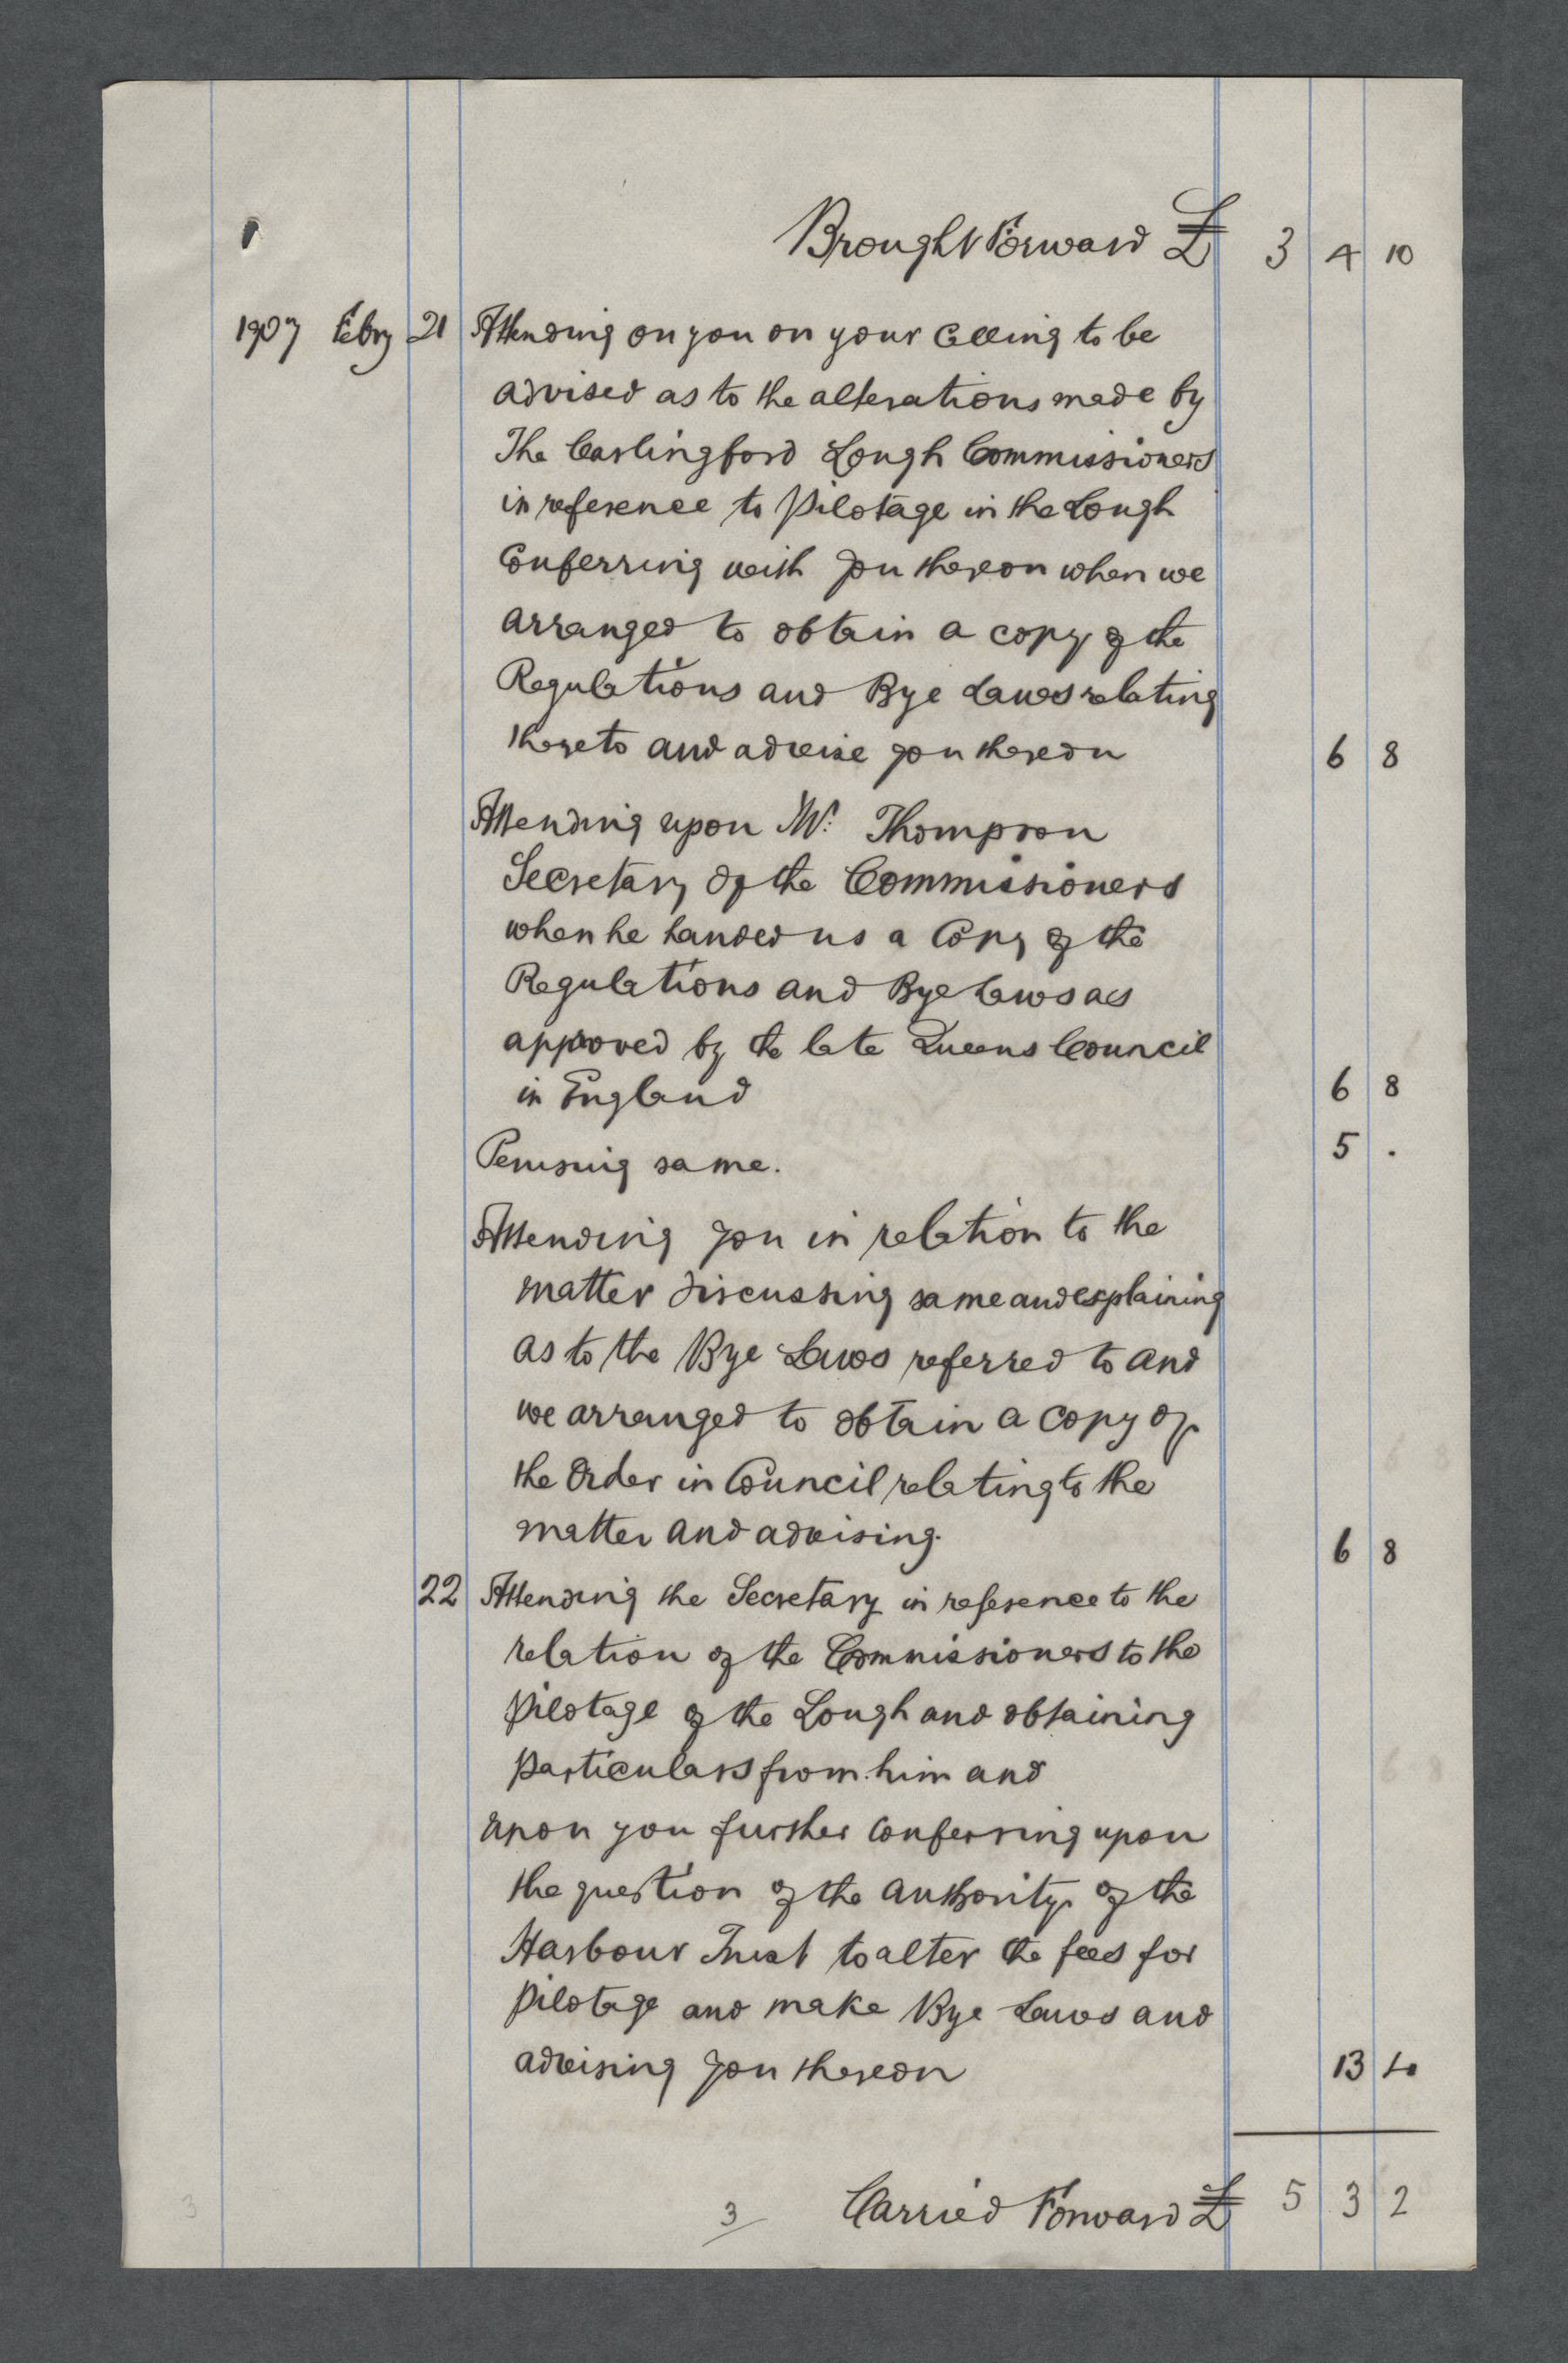 Brought Forward £ 3 4 10
1907 Febry 21 Attending on you on your calling to be
advised as to the alterations made by
The Carlingford Lough Commissioners
in reference to Pilotage in the Lough
Conferring with you thereon when we
arranged to obtain a copy of the
Regulations and Bye Laws relating
thereto and advise you thereon 6 8
Attending upon Mr. Thompson
Secretary of the Commissioners
when he handed us a Copy of the
Regulations and Bye Laws as
approved by the late Queens Council
in England 6 8
Perusing same. 5 .
Attending you in relation to the
matter discussing same and explaining
as to the Bye Laws referred to and
we arranged to obtain a copy of
the Order in Council relating to the
matter and advising. 6 8
22 Attending the Secretary in reference to the
relation of the Commissioners to the
Pilotage of the Lough and obtaining
particulars from him and
upon you further conferring upon
the question of the authority of the
Harbour Trust to alter the fees for
Pilotage and make Bye Laws and
advising you thereon 13 4
3 3 Carried Forward £ 5 3 2